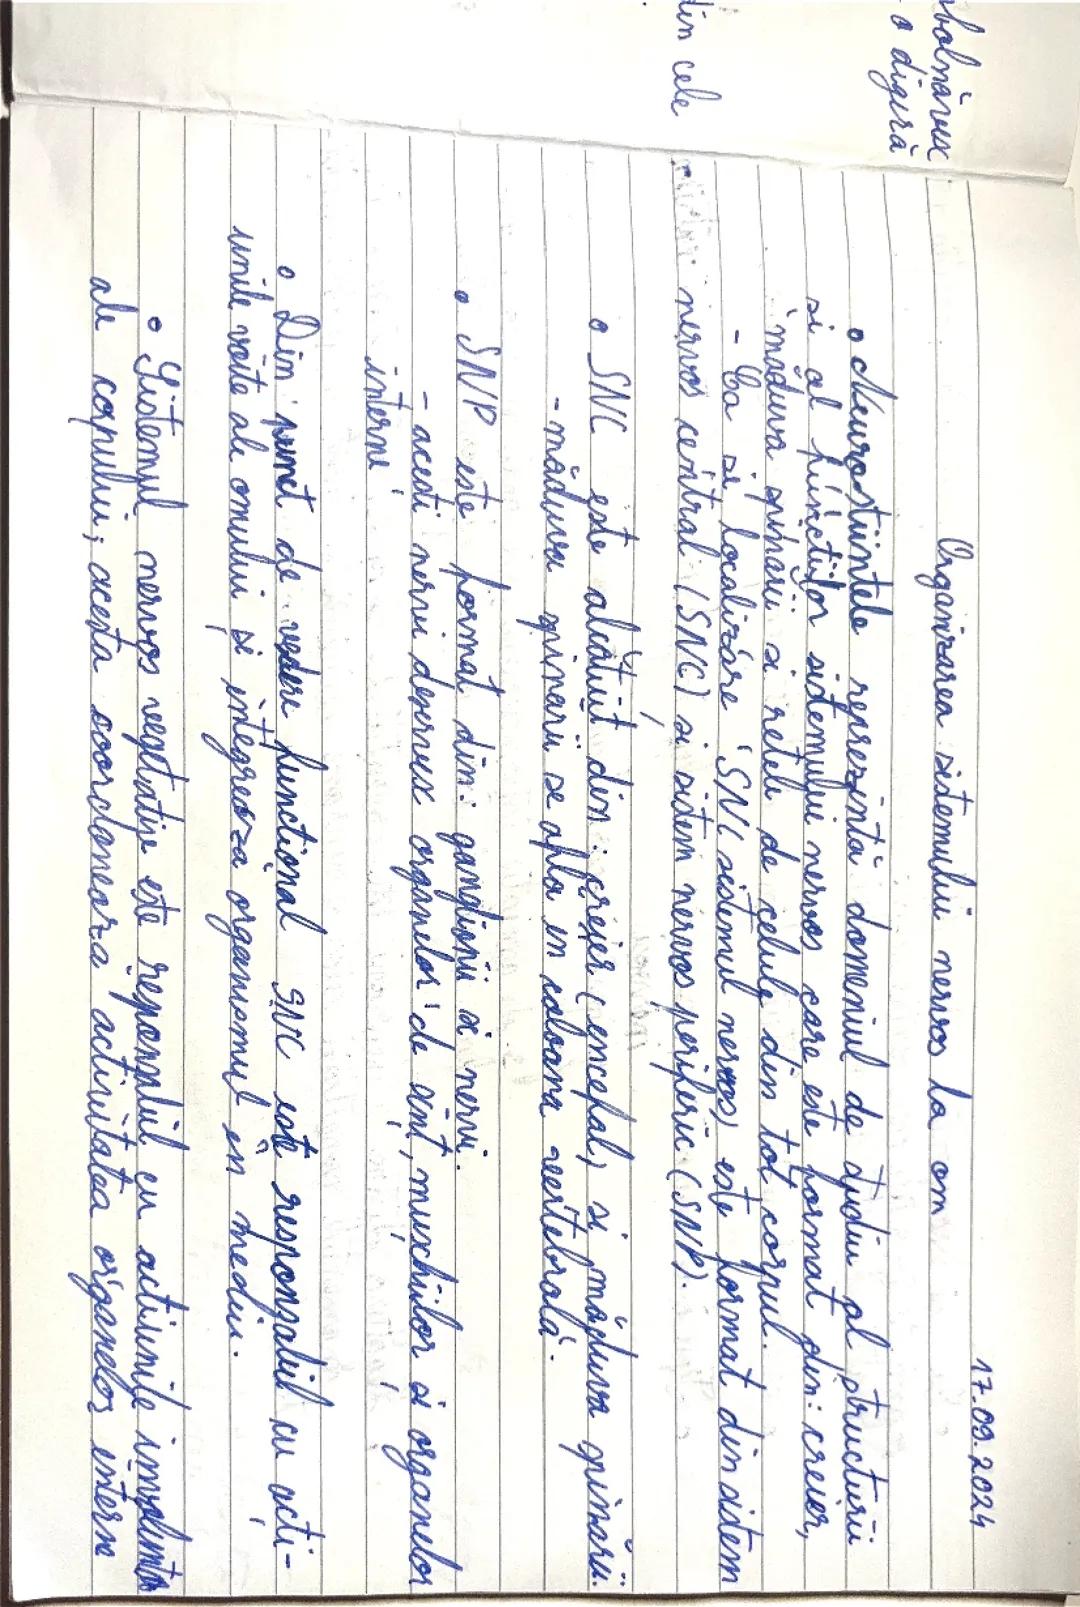 17.09.2024
Organizarea sistemului nervos la om
o Neuroștiințele reprezintă domeniul de studiu al structurii
și al funcțiilor sistemului nervos care este format din: creier,
măduva spinării și rețele de celule din tot corpul.
- Ca și localizare SN (sistemul nervos) este format din sistem
nervos central (SNC) și sistem nervos periferic (SNP).
o SNC este alcătuit din: creier (encefal) și măduva spinării.
- măduva spinării se afla în coloana vertebrală.
o SNP este format din: ganglionii și nervi.
- acești nervi deservesc organelor de simț, mușchiilor și organelor
interne
o Din punct de vedere funcțional SNC este responsabil cu acți-
unile voite ale omului și integreaza organismul în mediu.
o Sistemul nervos vegetativ este responsabil cu acțiunile
ale corpului; acesta coordonează activitatea organelor interne
o digeră
din cele